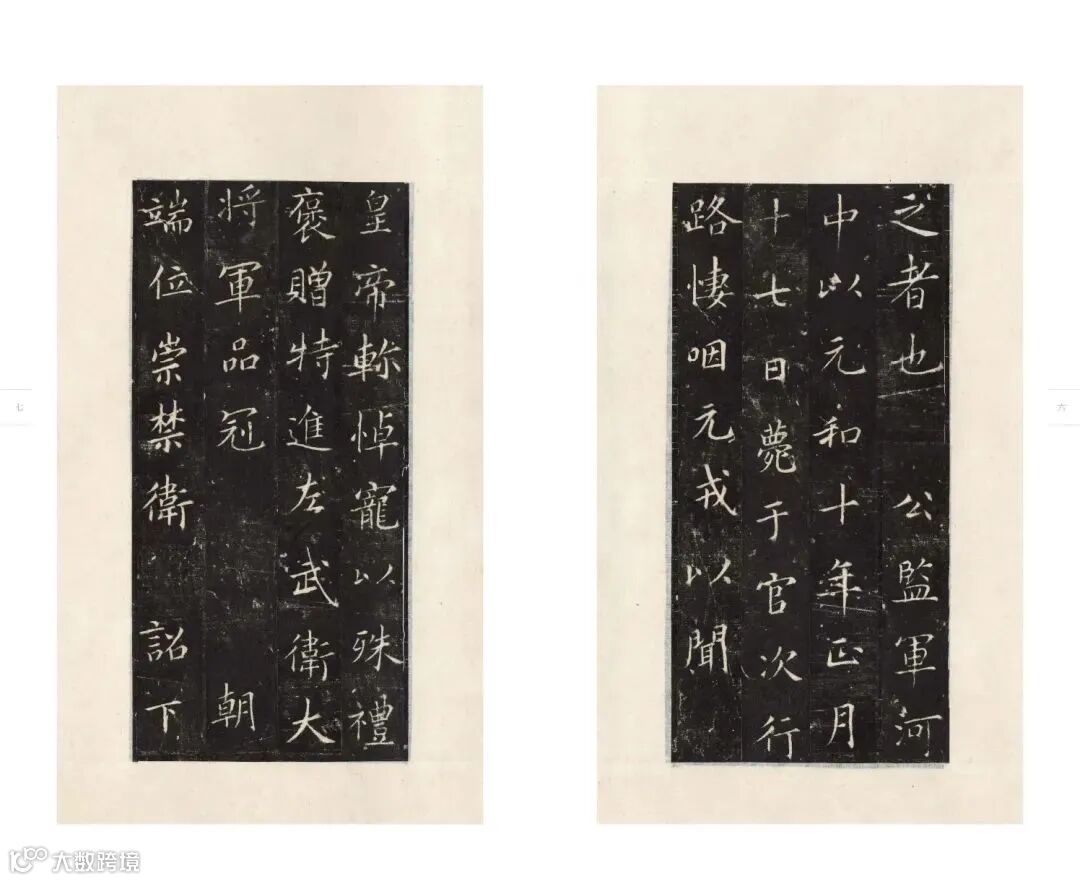 之者也　公監軍河
中以元和十年正月
十七日薨于官次行
路悽咽元戎以聞
六
皇帝軫悼寵以殊禮
褒贈特進左武衛大
將軍品冠　朝
端位崇禁衛　詔下
七
大数跨境